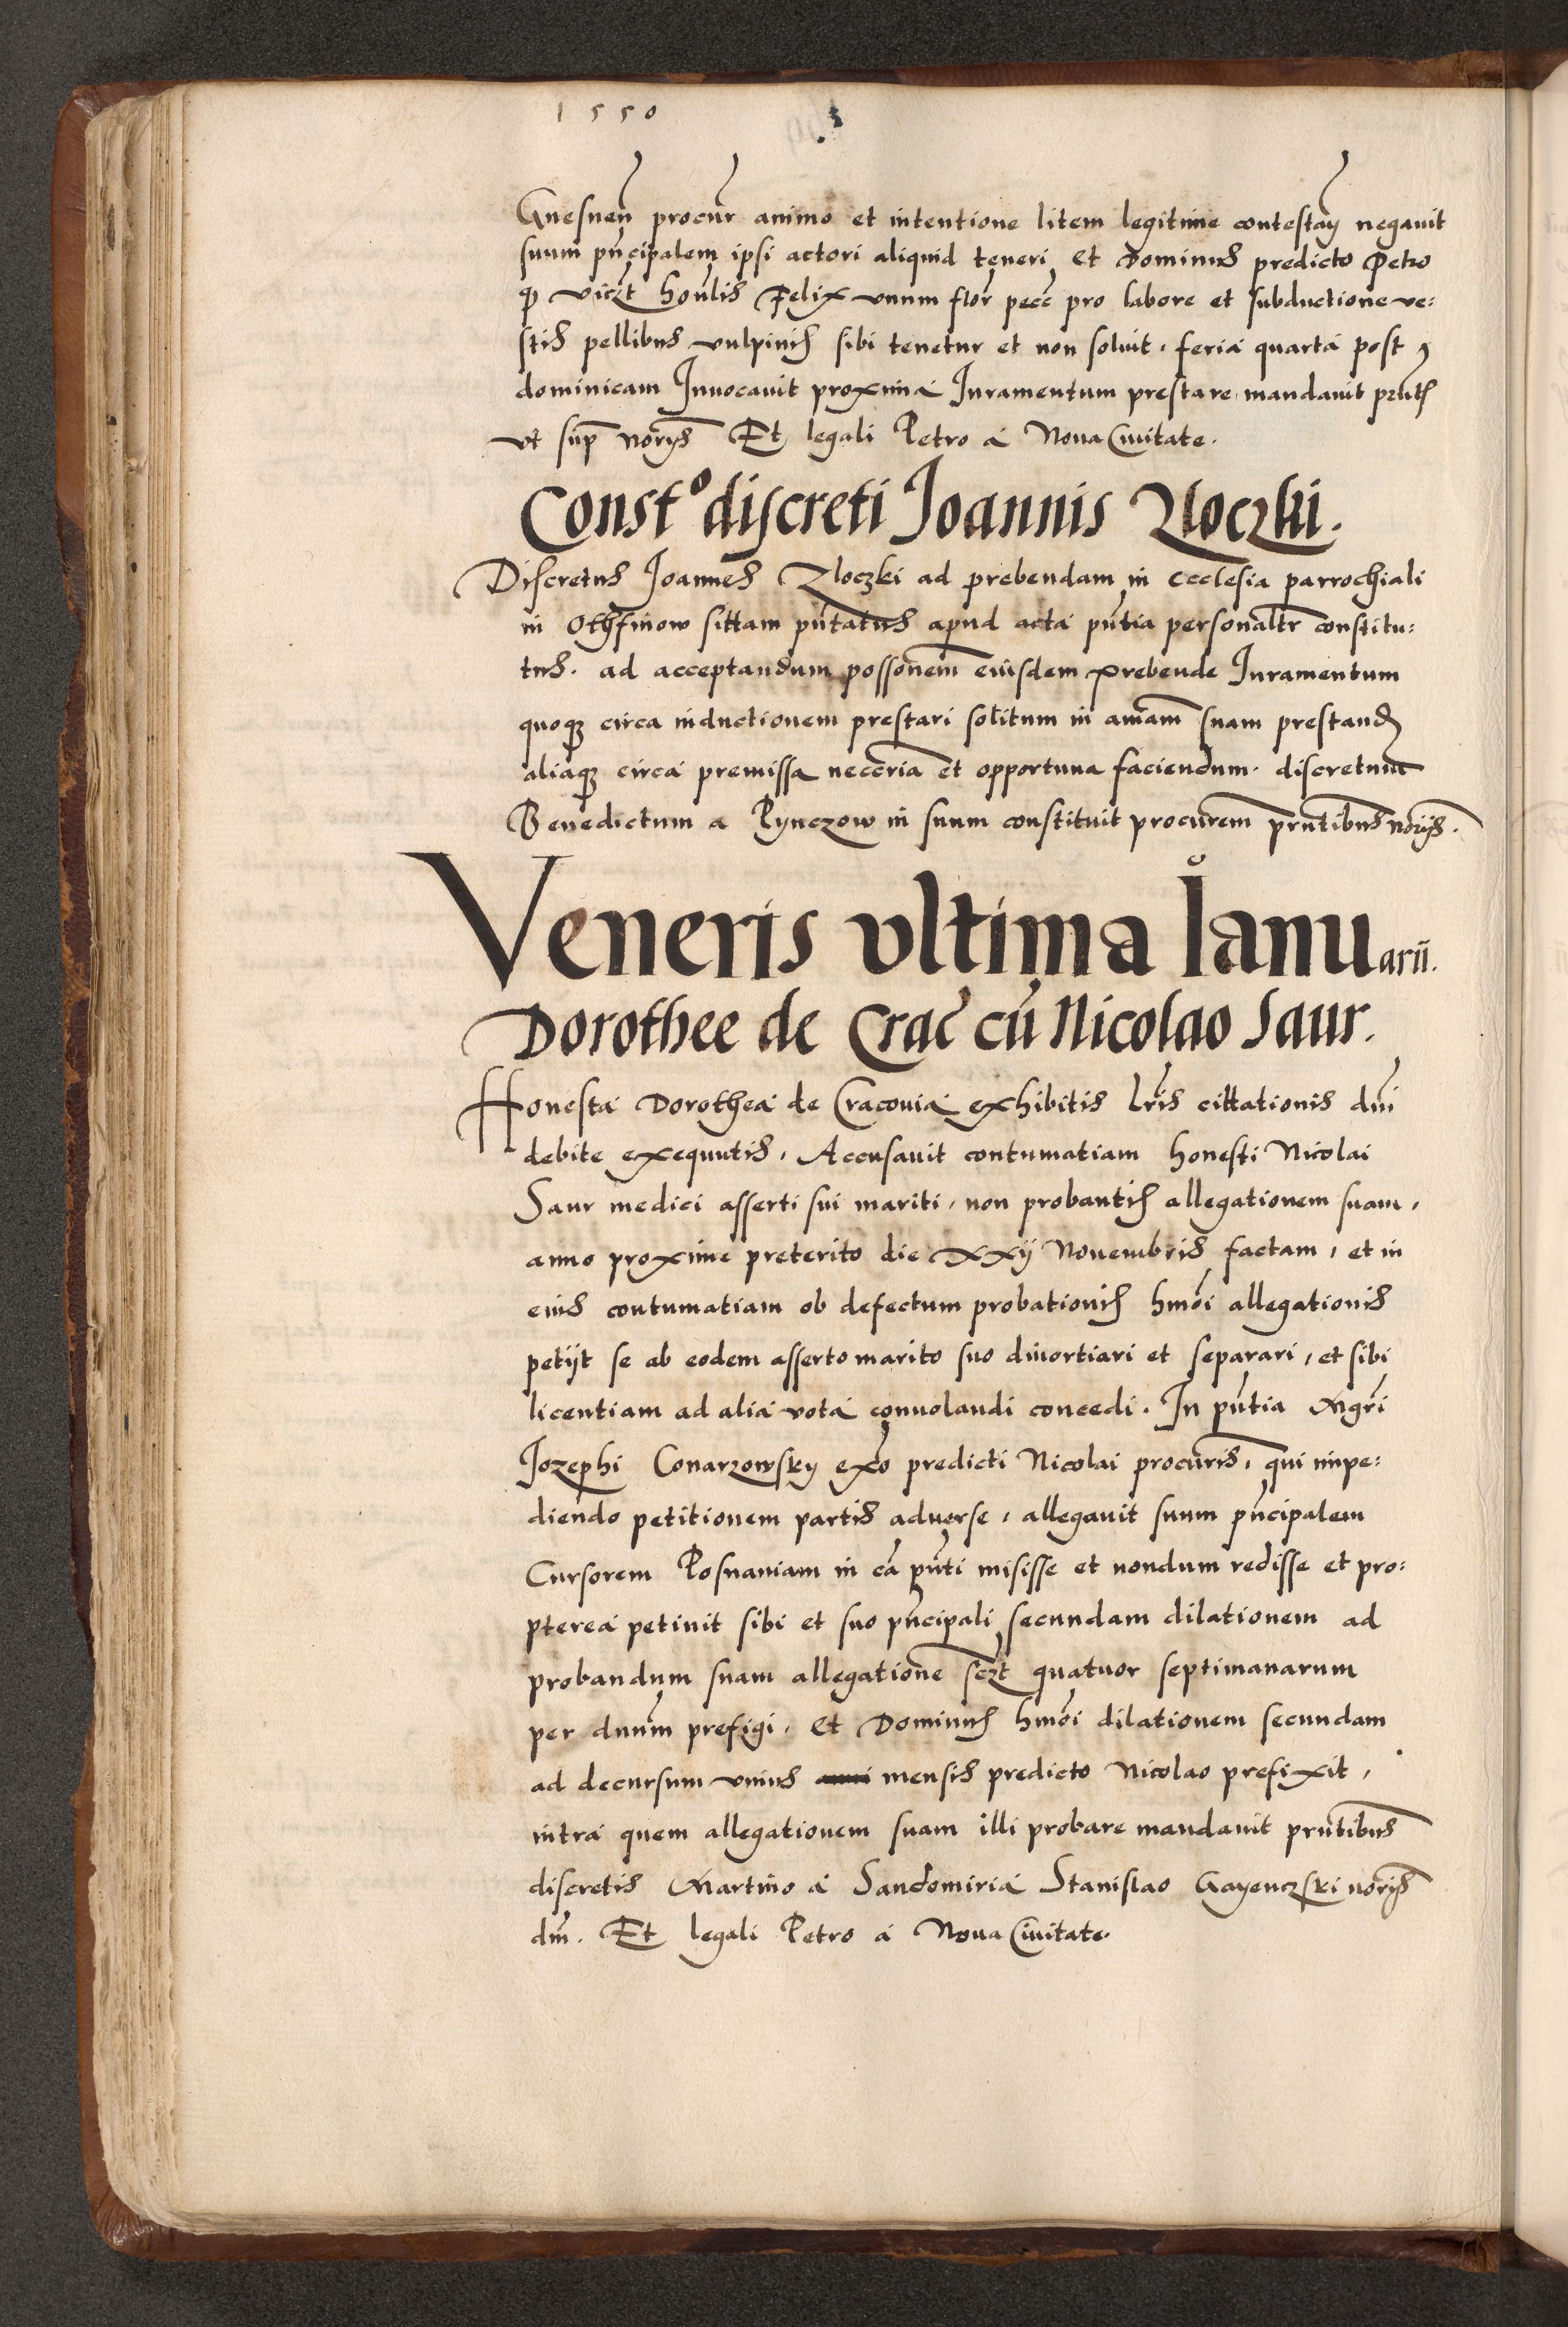 1550
Gnesnen̄ procur̄ animo et intentione litem legitime contestan̄ negavit
suum pn̄cipalem ipsi actori aliquid teneri, et Dominus predicto Petro
ꝙ vicꝫt honūlis Felix unum flor̄ pecc̄ pro labore et subductione ve:
stis pellibus vulpinis sibi tenetur et non solvit, feria quarta post
dominicam Invocavit proxima Iuramentum prestare mandavit pn̄tꝭ
ut sup̄ norijs Et legali Petro á Nova Civitate.
Constᵒ discreti Joannis Zloczki.
Discretus Joannes Zloczki ad prebendam in ecclesia parrochiali
in Othfinow sittam pn̄tatus apud acta pn̄tia personaltr̄ constitu:
tus. ad acceptandum possonem̄ eiusdem prebende Iuramentum
quoqꝫ circa inductionem prestari solitum in aīam suam prestand̄
aliaqꝫ circa premissa neccr̄ia et opportuna faciendum. discretum
Benedictum a Pynczow in suum constituit procurem̄ prn̄tibus norijs.
Veneris ultima Ianuarii.
Dorothee de Crac̄ cū Nicolao Saur.
Honesta Dorothea de Cracovia exhibitis lr̄is cittationis dn̄i
debite exequutis, Accusavit contumatiam honesti Nicolai
Saur medici asserti sui mariti, non probantis allegationem suam,
anno proxime preterito die xxij Novembris factam, et in
eius contumatiam ob defectum probationis hmōi allegationis
petijt se ab eodem asserto marito suo divortiari et separari, et sibi
licentiam ad alia vota convolandi concedi. In pn̄tia Mgr̄i
Jozephi Conarzowsky exō predicti Nicolai procuris̄, qui impe:
diendo petitionem partis adverse, allegavit suum pn̄cipalem
Cursorem Posnaniam in cā pn̄ti misisse et nondum redisse et pro:
pterea petivit sibi et suo pn̄cipali secundam dilationem ad
probandum suam allegationē scꝫt quatuor septimanarum
per dnūm prefigi. Et Dominus hmōi dilationem secundam
ad decursum unius mensis predicto Nicolao prefixit,
intra quem allegationem suam illi probare mandavit prn̄tibus
discretis Martino á Sandomiria Stanislao Gayenczski norijs
dn̄i. Et legali Petro á Nova Civitate.